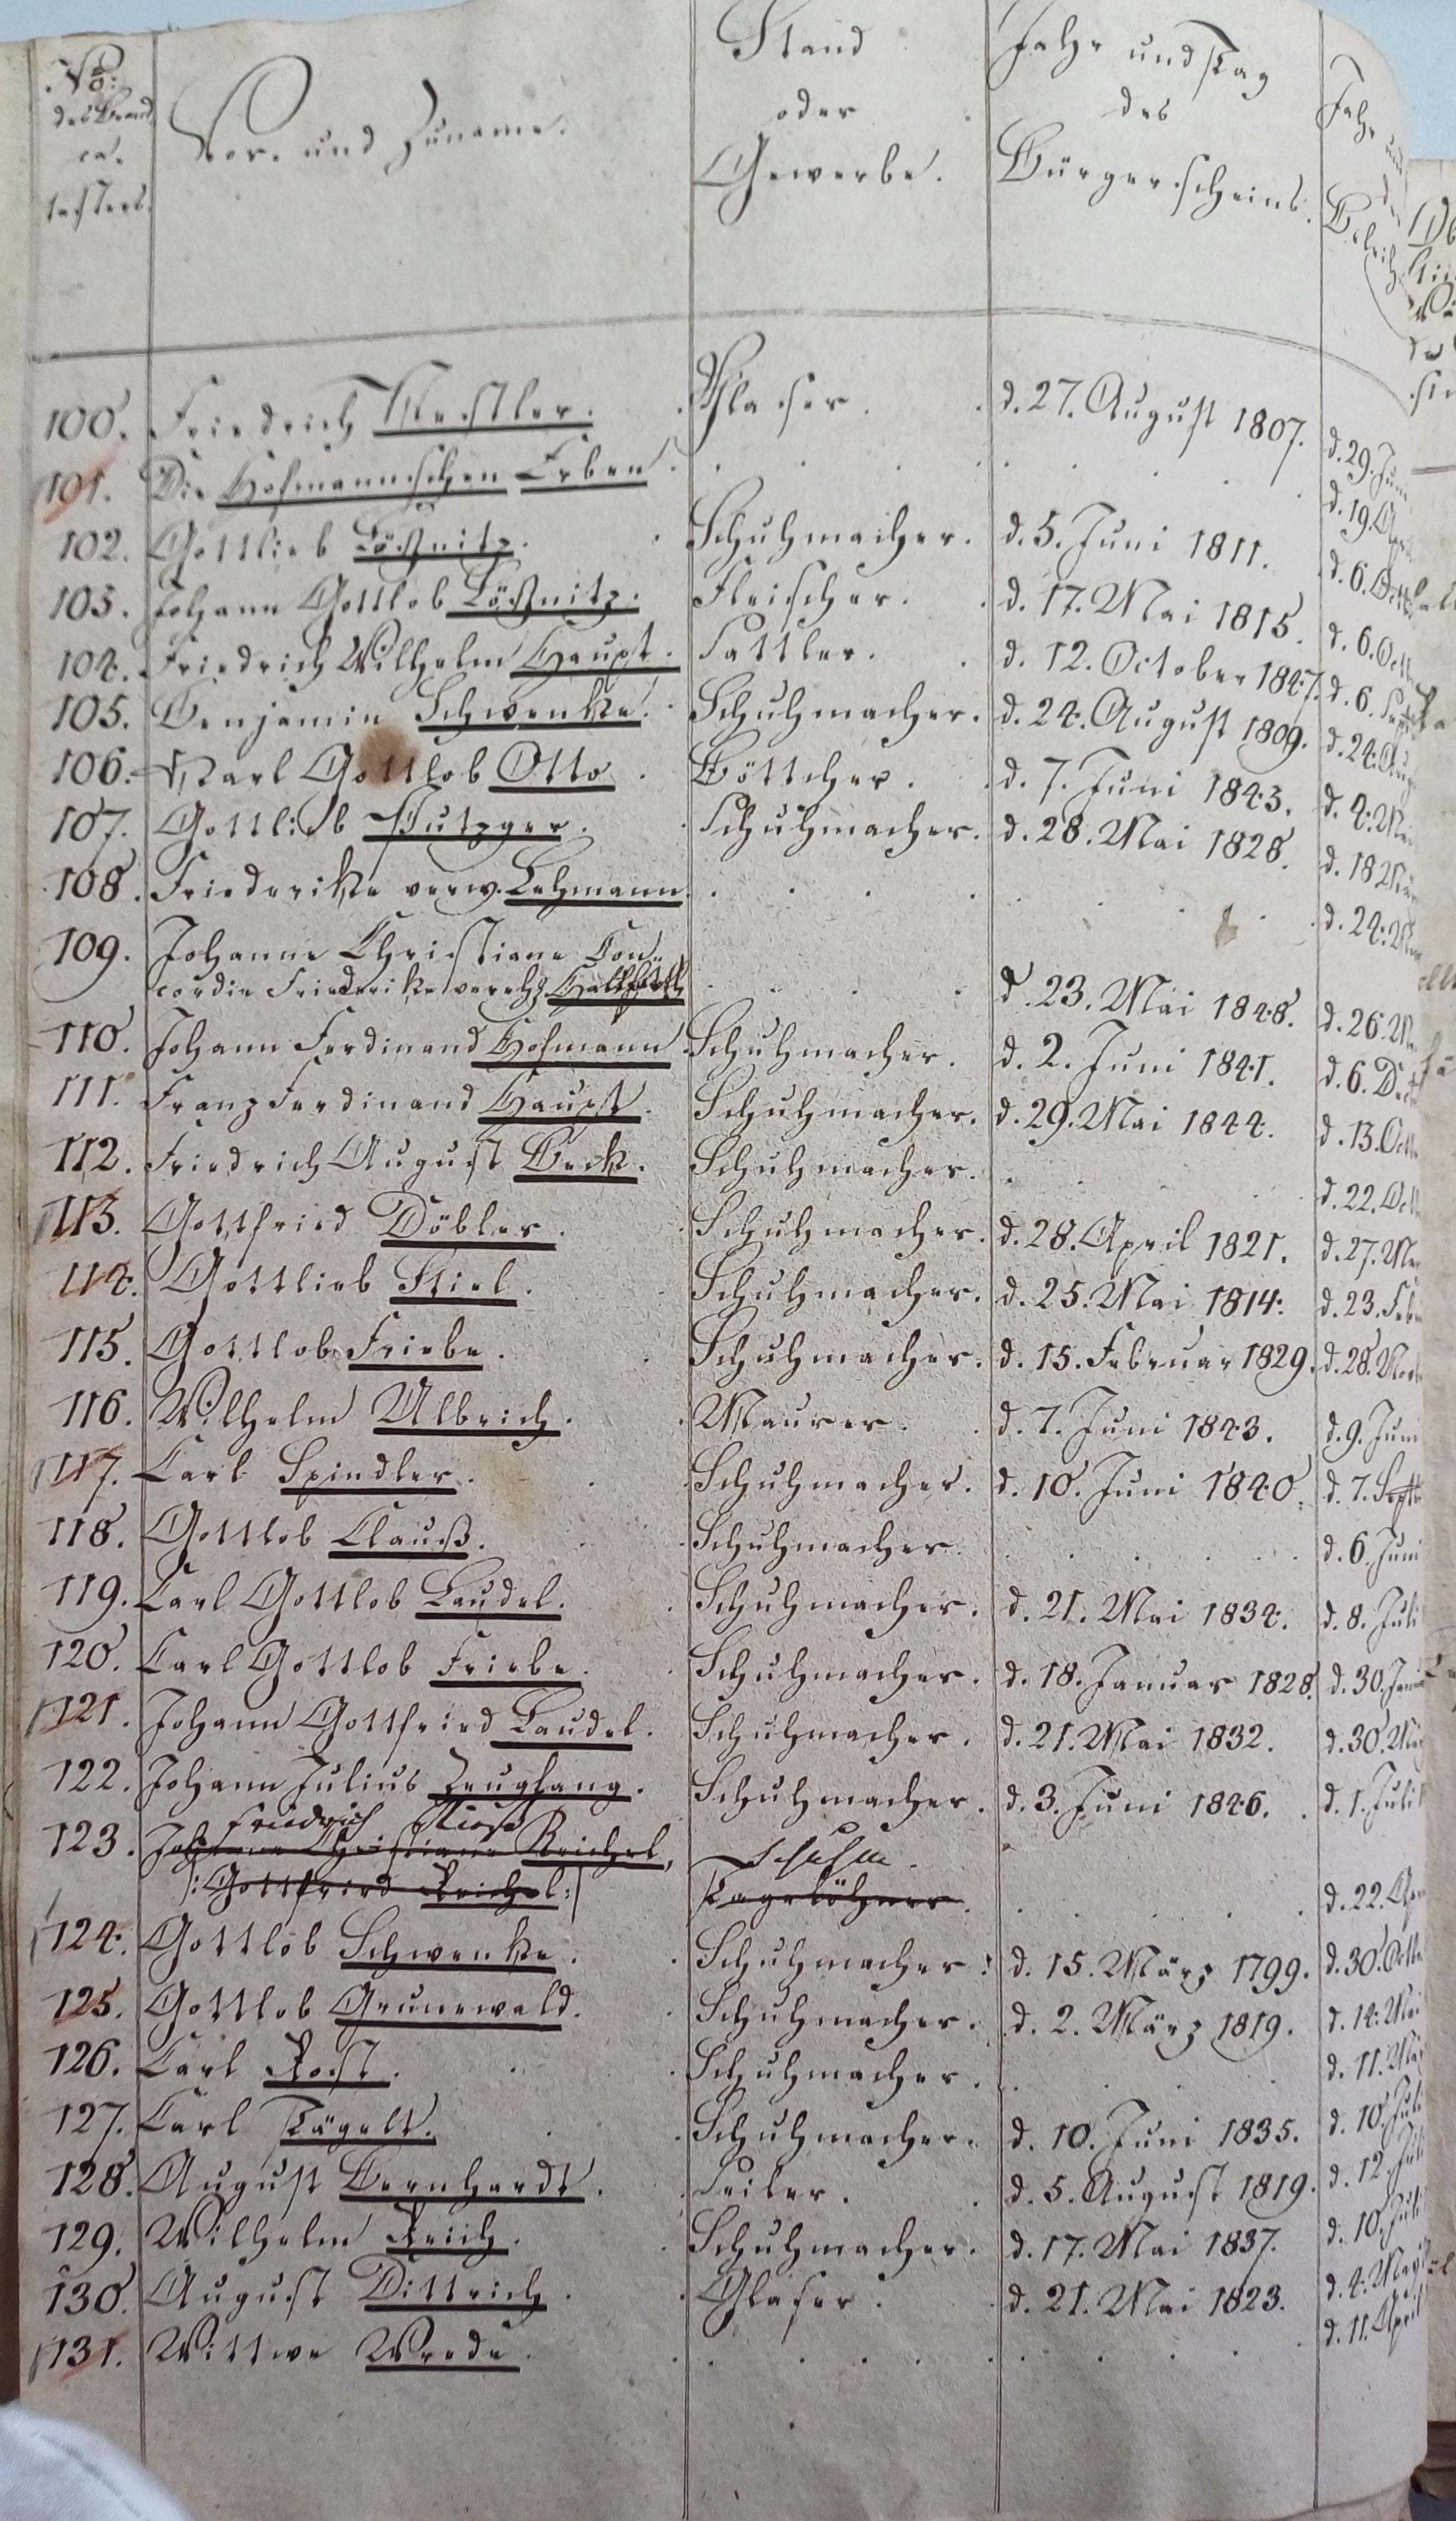 No:
des Brand
ca.
tasters.
Vor- und Zuname.
Stand
oder
Gewerbe.
Jahr und Tag
des
Bürgerscheins.
Jahr und
100. Friedrich . Glaser. d. 27. August 1807. d. 29. Juni
101. Die Hofmannschen Erben. d. 19. Apr
102. Gottlieb Lößnitz. Schuhmacher. d. 5. Juni 1811. d. 6. Octb
103. Johann Gottlob Lößnitz. Fleischer. d. 17. Mai 1815. d. 6. Octb
104. Friedrich Wilhelm Haupt. Sattler. d. 12. October 1847. d. 6. Septb
105. Benjamin Schwenke. Schuhmacher. d. 24. August 1809. d. 24. Aug
106. Karl Gottlob Otto. Böttcher. d. 7. Juni 1843. d. 4. Mai
107. Gottlieb Putzger. Schuhmacher. d. 28. Mai 1828. d. 18.
108. Friederike verw. Lehmann. d. 24.
109. Johanne Christiane Con-
cordie Friederike verehl. d. 23. Mai 1848. d. 26.
110. Johann Ferdinand Hofmann. Schuhmacher. d. 2. Juni 1841. d. 6. Dec
111. Franz Ferdinand Haupt. Schuhmacher. d. 29. Mai 1844. d. 13. Octb
112. Friedrich August Beck. Schuhmacher. d. 22. Oct
113. Gottfried Döbler. Schuhmacher. d. 28. April 1821. d. 27. Ma
114. Gottlieb Stiel. Schuhmacher. d. 25. Mai 1814. d. 23. Feb
115. Gottlob Friebe. Schuhmacher. d. 15. Februar 1829. d. 28. Nov
116. Wilhelm Ulbrich. Maurer. d. 7. Juni 1843. d. 9. Juni
117. Carl Spindler. Schuhmacher. d. 10. Juni 1840. d. 7. Septb
118. Gottlob Clauß. Schuhmacher. d. 6. Juni
119. Carl Gottlob Laudel. Schuhmacher. d. 21. Mai 1834. d. 8. Juli
120. Carl Gottlob Friebe. Schuhmacher. d. 18. Januar 1828. d. 30. Janu
121. Johann Gottfried Laudel. Schuhmacher. d. 21. Mai 1832. d. 30.
122. Johann Julius Zeugfang. Schuhmacher. d. 3. Juni 1846. d. 1. Juli
Friedrich
123. Johanne Christiane Reichel, Schuhm.
/: Gottfried Reichel :/ Tagelöhner. d. 22.
124. Gottlob Schwenke. Schuhmacher. d. 15. März 1799. d. 30. Octb
125. Gottlob Grunewald. Schuhmacher. d. 2. März 1819. d. 14. Mai
126. Carl Rost. Schuhmacher. d. 11.
127. Carl Kägelt. Schuhmacher. d. 10. Juni 1835. d. 10. Juli
128. August Bernhardt. Seiler. d. 5. August 1819. d. 12. Juli
129. Wilhelm Reich. Schuhmacher. d. 17. Mai 1837. d. 10. Juli
130. August Dittrich. Glaser. d. 21. Mai 1823. d. 4. May
131. Wittwe Wrede. d. 11. April